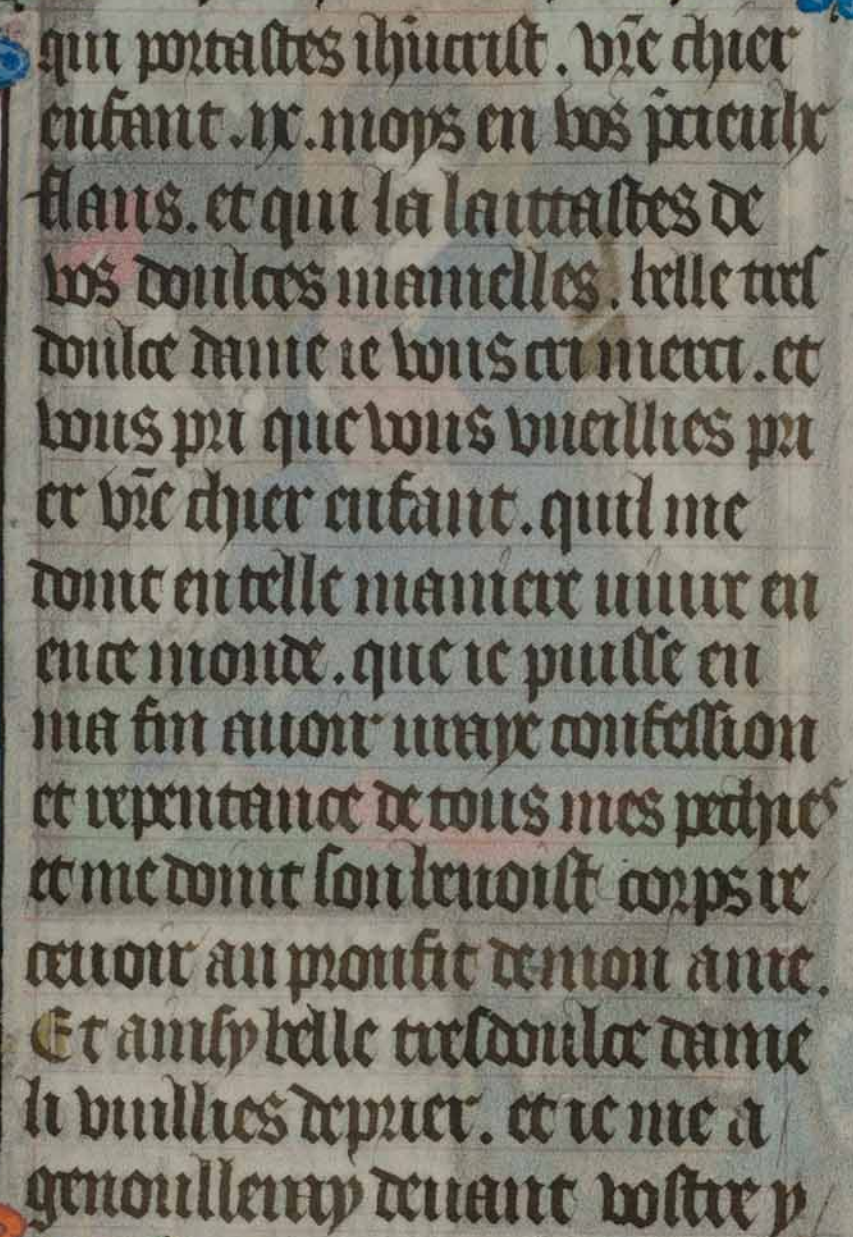 qui portastes ihūcrist . vr̄e chier
enfant . ix . moys en vos p̄cieulx
flans . et qui la laittastes de
vos doulces mamelles . belle tres
doulce dame ie vous cri merci . et
vous pri que vous vueillies pri
er vr̄e chier enfant . quil me
doint en telle maniere viure en
en ce monde . que ie puisse en
ma fin auoir uraye confession
et repentance de tous mes pechies
et me doint son benoist corps re
ceuoir au proufit de mon ame .
Et ainsy belle tresdoulce dame
li vuillies de prier . et ie me a
genoulleray deuant vostre y